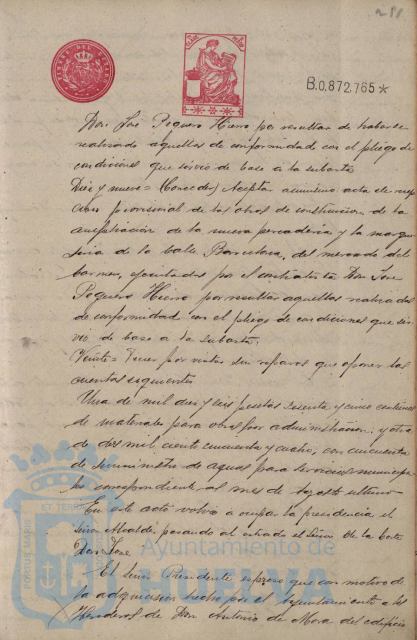 B.0,872,765*
Don José Peguero Hierro por resultar de haberse
realizado aquellas de conformidad con el pliego de
condiciones que sirvió de base a la subasta
Diez y nueve = Aceptar asimismo acta de recep
cion provisional de las obras de construccion de la
ampliacion de la nueva pescaderia y la marque
sina de la Calle Barcelona, del mercado del
Carmen, ejecutadas por el contratista Don José
Peguero Hierro por resultar aquellas realizadas
de conformidad con el pliego de condiciones que sir
vió de base a la subasta.
Veinte = Tener por vistas sin reparos que oponer las
cuentas siguientes
Una de mil diez y seis pesetas sesenta y cinco centimos
de materiales para obras por administracion, y otra
de dos mil ciento cincuenta y cuatro, con cincuenta
de suministro de aguas para servicios municipa
les correspondiente al mes de Agosto ultimo
En este acto volvio a ocupar la presidencia el
Señor Alcalde pasando al estrado el Señor de la Corte
Don José
El Señor Presidente expreso que con motivo de
la adquisicion hecha por el Ayuntamiento a los
Herederos de Don Antonio de Mora del edificio
PORTUS MARIS ET TERRAE
Ayuntamiento de
HUELVA